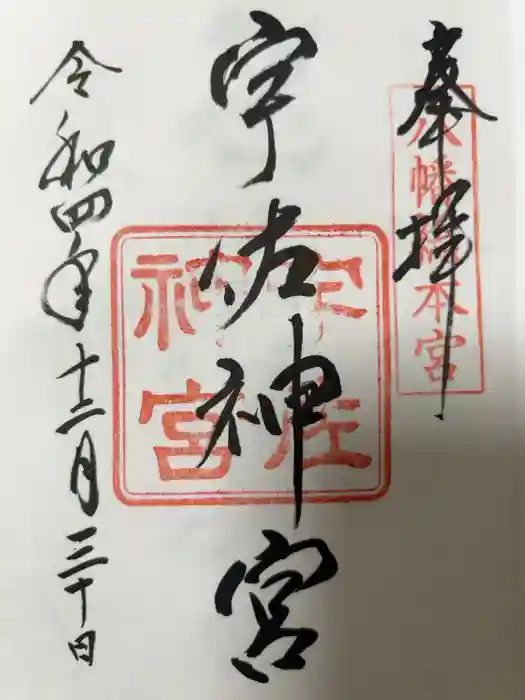 奉拝
八幡総本宮
宇佐神宮
宇佐神宮
令和四年十二月三十日